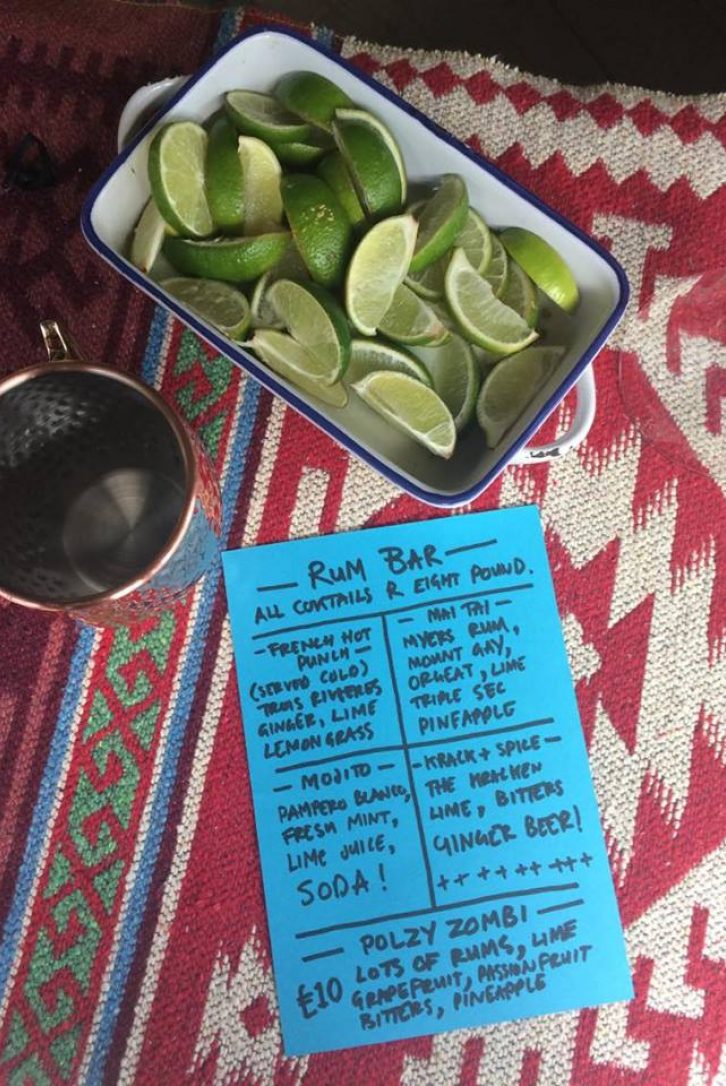 — RUM BAR —
ALL COCKTAILS R EIGHT POUND.
- FRENCH HOT
PUNCH -
(SERVED COLD)
TROIS RIVIERES
GINGER, LIME
LEMONGRASS
- MAI TAI -
MYERS RUM,
MOUNT GAY,
ORGEAT, LIME
TRIPLE SEC
PINEAPPLE
- MOJITO -
PAMPERO BLANCO,
FRESH MINT,
LIME JUICE,
SODA!
- KRACK + SPICE -
THE KRACKEN
LIME, BITTERS
GINGER BEER!
++ ++ ++ +++
— POLZY ZOMBI —
£10 LOTS OF RUMS, LIME
GRAPEFRUIT, PASSIONFRUIT
BITTERS, PINEAPPLE